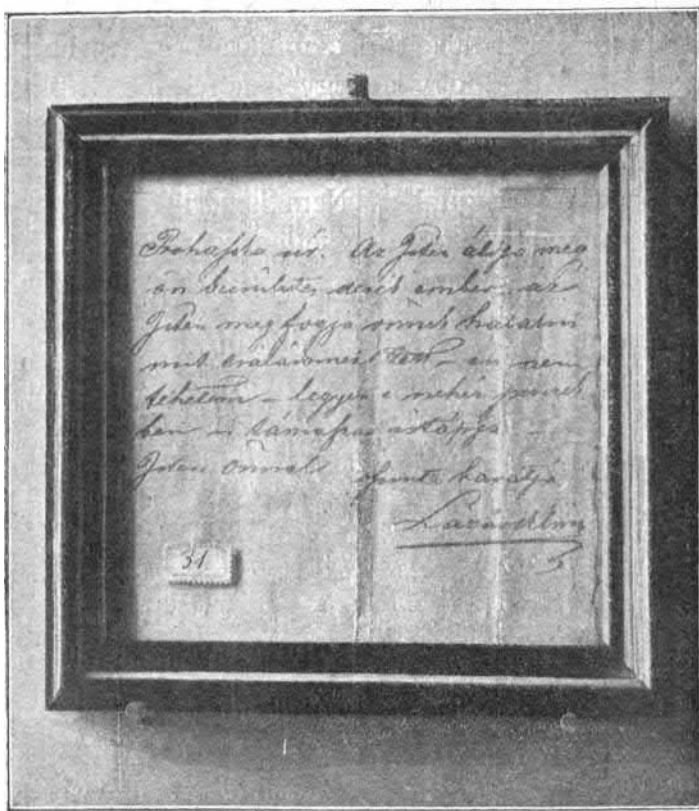 Prohaszka úr. Az Isten áldja meg
ön becsületes derék ember, az
Isten meg fogja önnek hálálni
mit családomért tett – én nem
tehetem – legyen e nehéz
ben is támasza istápja –
Isten önnel barátja
Lázár Vilmos
31